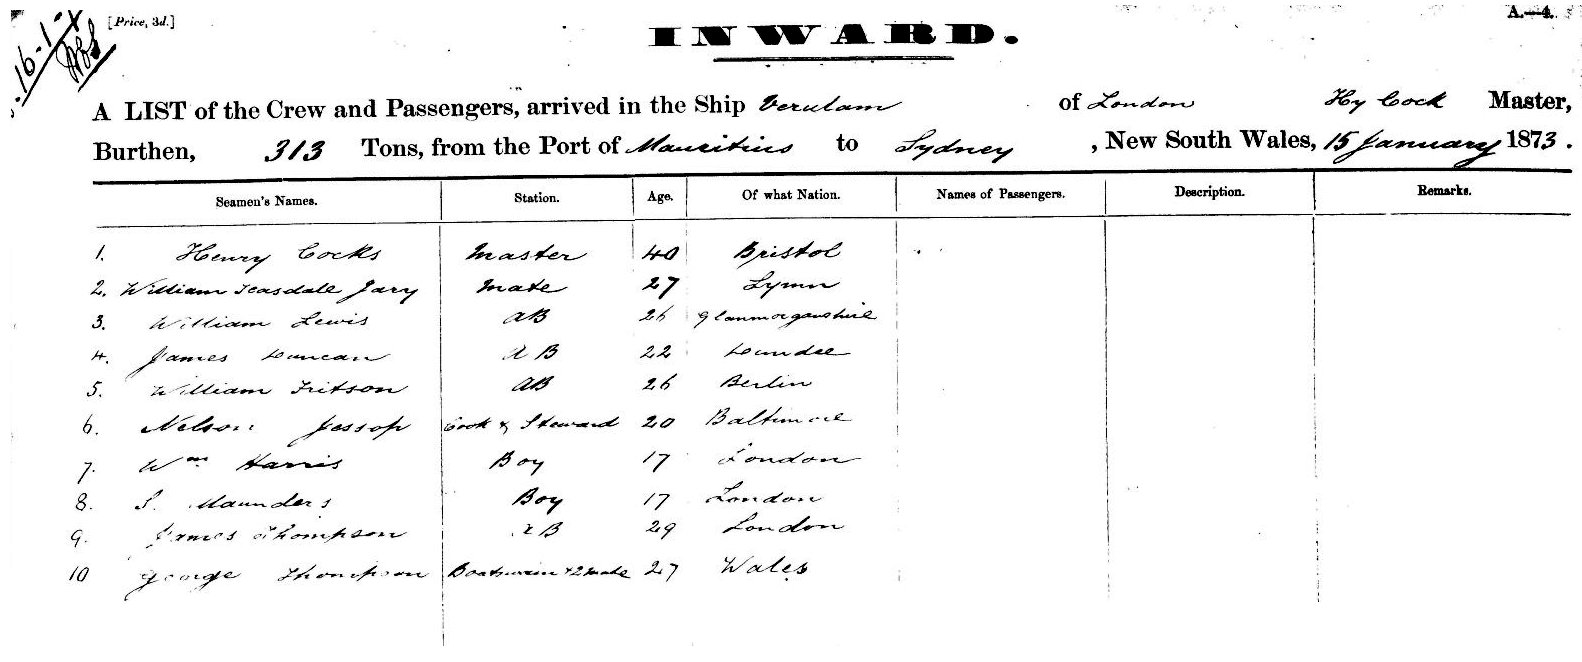 [Price, 3d.]
A.—4.
16-1-
INWARD.
A LIST of the Crew and Passengers, arrived in the Ship Verulam of London Hy Cock Master,
Burthen, 313 Tons, from the Port of Mauritius to Sydney, New South Wales, 15 January 1873.
Seamen's Names. Station. Age. Of what Nation. Names of Passengers. Description. Remarks.
1. Henry Cocks Master 40 Bristol
2. William Teasdale Jary Mate 27 Lynn
3. William Lewis AB 26 Glanmorganshire
4. James Duncan AB 22 Dundee
5. William Fritson AB 26 Berlin
6. Nelson Jessop Cook & Steward 20 Baltimore
7. Wm Harris Boy 17 London
8. S. Maunders Boy 17 London
9. James Thompson AB 29 London
10 George Thompson Boatswain & 2 Mate 27 Wales